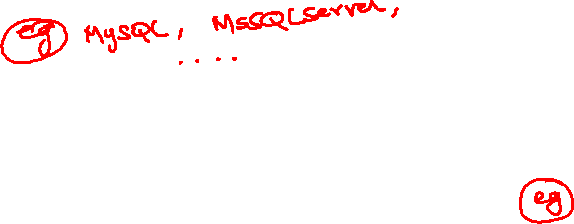 eg MySQL, MsSQLServer,
....
eg